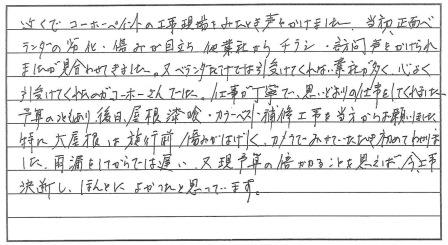 近くでコーホーペイントの工事現場をみたとき声をかけました。当初正面ベ
ランダの劣化・傷みが目立ち他業社からチラシ・訪問声をかけられ
ましたが見合わせてきました。又ベランダだけでは引受けてくれない業社が多く、心よく
引受けてくれたのがコーホーさんでした。仕事が丁寧で、思いどおりの仕事をしてくれました。
予算のこともあり後日、屋根漆喰・カラーベスト補修工事を当方からお願いしました
特に大屋根は施行前傷みがはげしく、カメラでみせていただき初めてわかりま
した。雨漏をしてからでは遅い、又現予算の倍かかることを思えば、今工事
決断し、ほんとによかったと思っています。